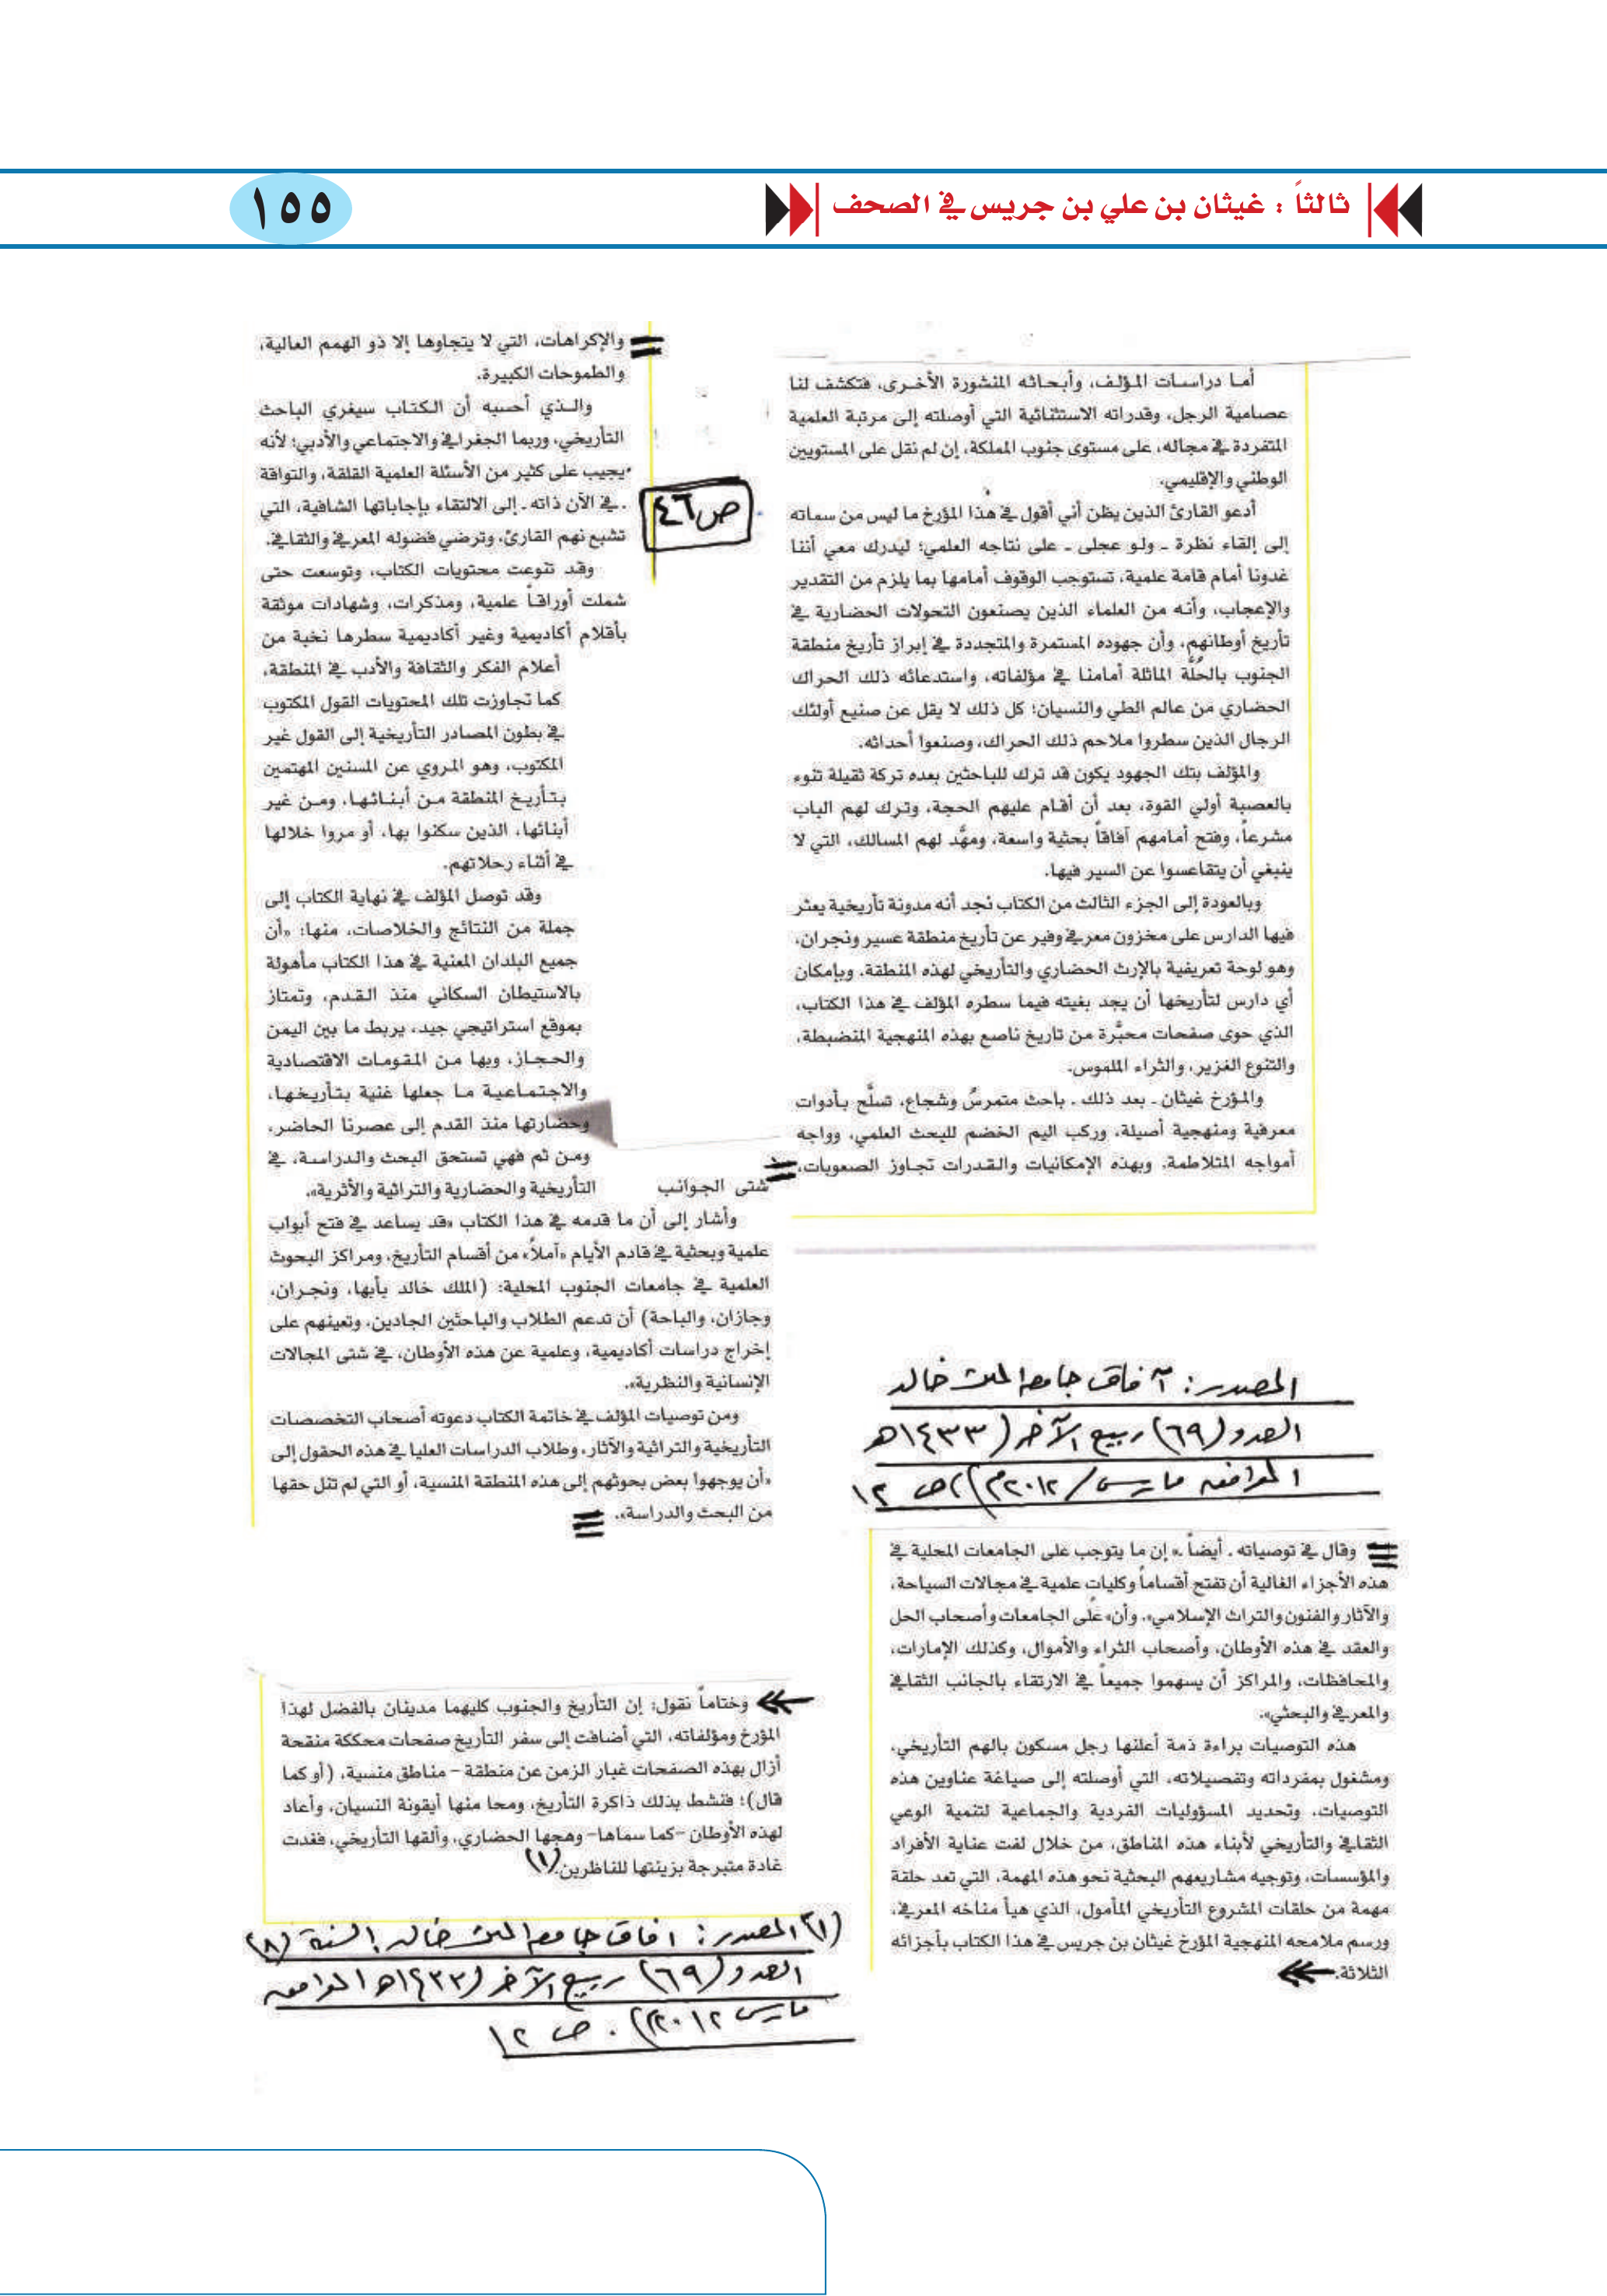 ثالثاً : غيثان بن علي بن جريس في الصحف
١٥٥
أما دراسات المؤلف، وأبحاثه المنشورة الأخرى، فتكشف لنا
عصامية الرجل، وقدراته الاستثنائية التي أوصلته إلى مرتبة العلمية
المتفردة في مجاله، على مستوى جنوب المملكة، إن لم نقل على المستويين
الوطني والإقليمي.
أدعو القارئ الذين يظن أني أقول في هذا المؤرخ ما ليس من سماته
إلى إلقاء نظرة ـ ولو عجلى ـ على نتاجه العلمي؛ ليدرك معي أننا
غدونا أمام قامة علمية، تستوجب الوقوف أمامها بما يلزم من التقدير
والإعجاب، وأنه من العلماء الذين يصنعون التحولات الحضارية في
تأريخ أوطانهم، وأن جهوده المستمرة والمتجددة في إبراز تأريخ منطقة
الجنوب بالحُلَّة الماثلة أمامنا في مؤلفاته، واستدعائه ذلك الحراك
الحضاري من عالم الطي والنسيان؛ كل ذلك لا يقل عن صنيع أولئك
الرجال الذين سطروا ملاحم ذلك الحراك، وصنعوا أحداثه.
والمؤلف بتك الجهود يكون قد ترك للباحثين بعده تركة ثقيلة تنوء
بالعصبة أولي القوة، بعد أن أقام عليهم الحجة، وترك لهم الباب
مشرعاً، وفتح أمامهم آفاقاً بحثية واسعة، ومهَّد لهم المسالك، التي لا
ينبغي أن يتقاعسوا عن السير فيها.
وبالعودة إلى الجزء الثالث من الكتاب نجد أنه مدونة تأريخية يعثر
فيها الدارس على مخزون معرفي وفير عن تأريخ منطقة عسير ونجران،
وهو لوحة تعريفية بالإرث الحضاري والتأريخي لهذه المنطقة. وبإمكان
أي دارس لتأريخها أن يجد بغيته فيما سطره المؤلف في هذا الكتاب،
الذي حوى صفحات محبَّرة من تاريخ ناصع بهذه المنهجية المنضبطة،
والتنوع الغزير، والثراء الملموس.
والمؤرخ غيثان ـ بعد ذلك ـ باحث متمرسٌ وشجاع، تسلَّح بأدوات
معرفية ومنهجية أصيلة، وركب اليم الخضم للبحث العلمي، وواجه
أمواجه المتلاطمة. وبهذه الإمكانيات والقدرات تجاوز الصعوبات،
والإكراهات، التي لا يتجاوها إلا ذو الهمم العالية،
والطموحات الكبيرة.
والذي أحسبه أن الكتاب سيغري الباحث
التأريخي، وربما الجغرافي والاجتماعي والأدبي؛ لأنه
يجيب على كثير من الأسئلة العلمية القلقة، والتواقة
ـ في الآن ذاته ـ إلى الالتقاء بإجاباتها الشافية، التي
تشبع نهم القارئ، وترضي فضوله المعرفي والثقافي.
ص٤٦
وقد تنوعت محتويات الكتاب، وتوسعت حتى
شملت أوراقاً علمية، ومذكرات، وشهادات موثقة
بأقلام أكاديمية وغير أكاديمية سطرها نخبة من
أعلام الفكر والثقافة والأدب في المنطقة،
كما تجاوزت تلك المحتويات القول المكتوب
في بطون المصادر التأريخية إلى القول غير
المكتوب، وهو المروي عن المسنين المهتمين
بتأريخ المنطقة من أبنائها، ومن غير
أبنائها، الذين سكنوا بها، أو مروا خلالها
في أثناء رحلاتهم.
وقد توصل المؤلف في نهاية الكتاب إلى
جملة من النتائج والخلاصات، منها: «أن
جميع البلدان المعنية في هذا الكتاب مأهولة
بالاستيطان السكاني منذ القدم، وتمتاز
بموقع استراتيجي جيد، يربط ما بين اليمن
والحجاز، وبها من المقومات الاقتصادية
والاجتماعية ما جعلها غنية بتأريخها،
وحضارتها منذ القدم إلى عصرنا الحاضر،
ومن ثم فهي تستحق البحث والدراسة، في
شتى الجوانب التأريخية والحضارية والتراثية والأثرية».
وأشار إلى أن ما قدمه في هذا الكتاب «قد يساعد في فتح أبواب
علمية وبحثية في قادم الأيام «آملاً» من أقسام التأريخ، ومراكز البحوث
العلمية في جامعات الجنوب المحلية: (الملك خالد بأبها، ونجران،
وجازان، والباحة) أن تدعم الطلاب والباحثين الجادين، وتعينهم على
إخراج دراسات أكاديمية، وعلمية عن هذه الأوطان، في شتى المجالات
الإنسانية والنظرية».
ومن توصيات المؤلف في خاتمة الكتاب دعوته أصحاب التخصصات
التأريخية والتراثية والآثار، وطلاب الدراسات العليا في هذه الحقول إلى
«أن يوجهوا بعض بحوثهم إلى هذه المنطقة المنسية، أو التي لم تنل حقها
من البحث والدراسة».
المصدر: آفاق جامعة الملك خالد
العدد (٦٩) ربيع الآخر (١٤٣٣هـ
الموافق مارس/٢٠١٢م) ص ١٢
وقال في توصياته ـ أيضاً ـ« إن ما يتوجب على الجامعات المحلية في
هذه الأجزاء الغالية أن تفتح أقساماً وكليات علمية في مجالات السياحة،
والآثار والفنون والتراث الإسلامي»، وأن« على الجامعات وأصحاب الحل
والعقد في هذه الأوطان، وأصحاب الثراء والأموال، وكذلك الإمارات،
والمحافظات، والمراكز أن يسهموا جميعاً في الارتقاء بالجانب الثقافي
والمعرفي والبحثي».
هذه التوصيات براءة ذمة أعلنها رجل مسكون بالهم التأريخي،
ومشغول بمفرداته وتفصيلاته، التي أوصلته إلى صياغة عناوين هذه
التوصيات، وتحديد المسؤوليات الفردية والجماعية لتنمية الوعي
الثقافي والتأريخي لأبناء هذه المناطق، من خلال لفت عناية الأفراد
والمؤسسات، وتوجيه مشاريعهم البحثية نحو هذه المهمة، التي تعد حلقة
مهمة من حلقات المشروع التأريخي المأمول، الذي هيأ مناخه المعرفي،
ورسم ملامحه المنهجية المؤرخ غيثان بن جريس في هذا الكتاب بأجزائه
الثلاثة.
وختاماً نقول: إن التأريخ والجنوب كليهما مدينان بالفضل لهذا
المؤرخ ومؤلفاته، التي أضافت إلى سفر التأريخ صفحات محككة منقحة
أزال بهذه الصفحات غبار الزمن عن منطقة – مناطق منسية، (أو كما
قال)؛ فنشط بذلك ذاكرة التأريخ، ومحا منها أيقونة النسيان، وأعاد
لهذه الأوطان –كما سماها– وهجها الحضاري، وألقها التأريخي، فغدت
غادة متبرجة بزينتها للناظرين.(١)
(١) المصدر: آفاق جامعة الملك خالد. السنة (٨)
العدد (٦٩) ربيع الآخر (١٤٣٣هـ الموافق
مارس ٢٠١٢م). ص ١٢